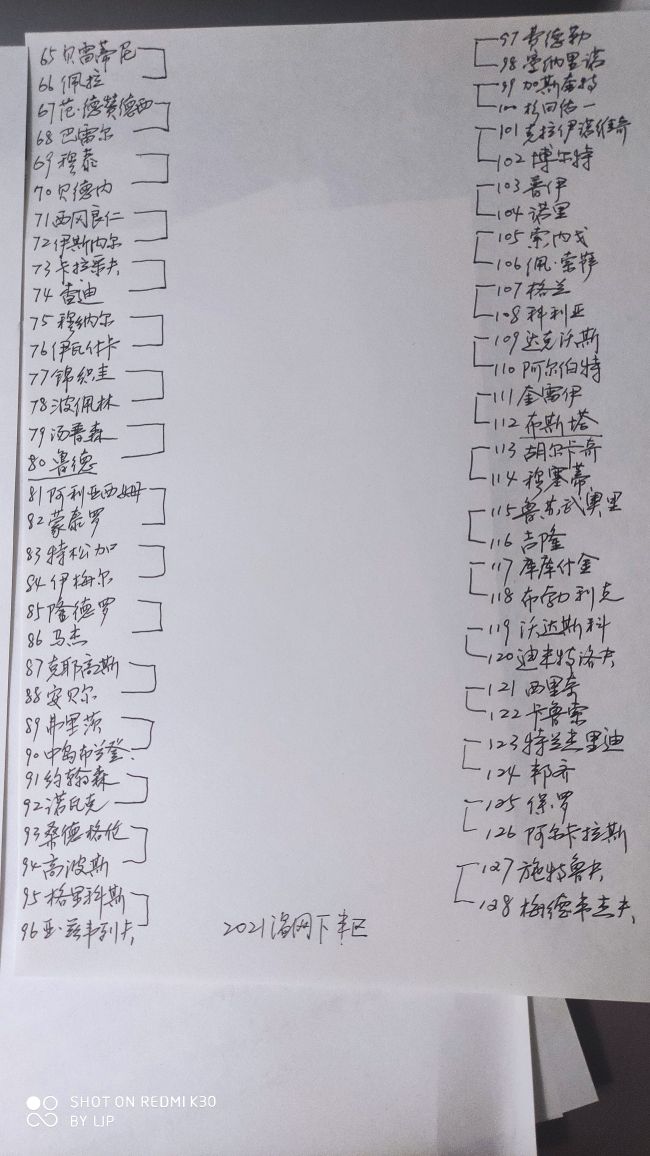 65 贝雷蒂尼
66 佩拉
67 范·德赞德西
68 巴雷尔
69 穆泰
70 贝德内
71 西冈良仁
72 伊斯内尔
73 卡拉采夫
74 查迪
75 穆纳尔
76 伊瓦什卡
77 锦织圭
78 波佩林
79 汤普森
80 鲁德
81 阿利亚西姆
82 蒙泰罗
83 特松加
84 伊梅尔
85 隆德罗
86 马杰
87 克耶高斯
88 安贝尔
89 弗里茨
90 中岛布兰登
91 约翰森
92 诺瓦克
93 桑德格伦
94 高波斯
95 格里科斯
96 亚·兹韦列夫
2021温网下半区
97 费德勒
98 曼纳里诺
99 加斯奎特
100 杉田佑一
101 克拉伊诺维奇
102 博尔特
103 普伊
104 诺里
105 索内戈
106 佩·索萨
107 格兰
108 科利亚
109 达克沃斯
110 阿尔伯特
111 奎雷伊
112 布斯塔
113 胡尔卡奇
114 穆塞蒂
115 鲁苏武奥里
116 吉隆
117 库库什金
118 布勃利克
119 沃达斯科
120 迪米特洛夫
121 西里奇
122 卡鲁索
123 特兰杰里迪
124 邦齐
125 保罗
126 阿尔卡拉斯
127 施特鲁夫
128 梅德韦杰夫
SHOT ON REDMI K30
BY LJP